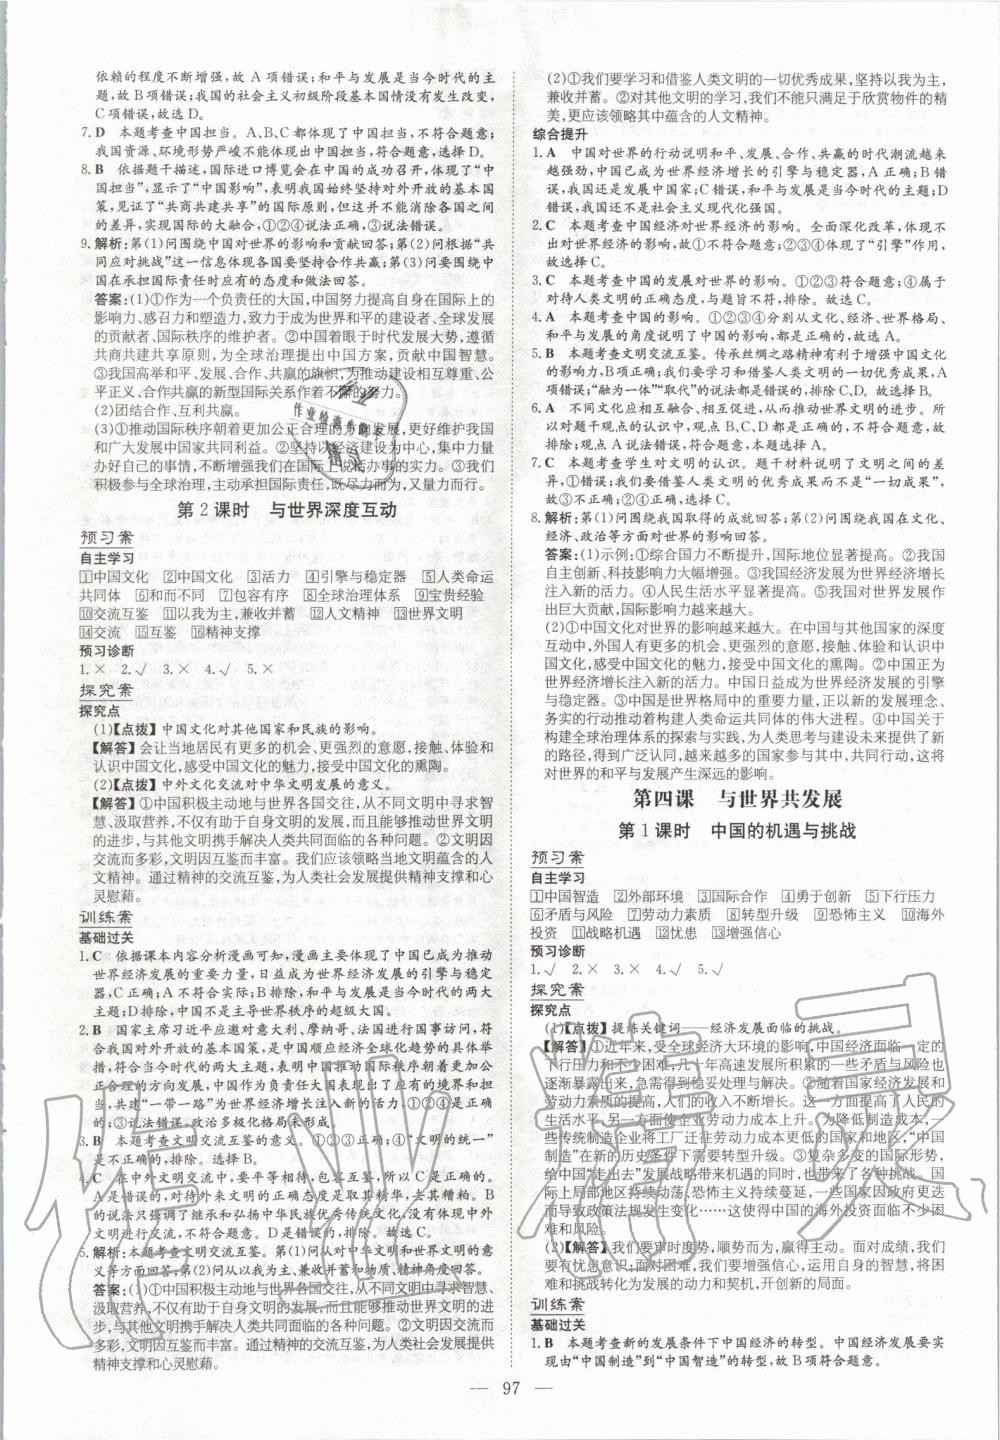 依赖的程度不断增强,故 A 项错误;和平与发展是当今时代的主
题,故 B 项错误;我国的社会主义初级阶段基本国情没有发生改变,
C 项错误;故选 D。
7. D 本题考查中国担当。A、B、C 都体现了中国担当,不符合题意;
我国资源、环境形势严峻不能体现中国担当,符合题意,故选 D。
8. B 依据题干描述,国际进口博览会在中国的成功召开,体现了“中
国担当”,显示了“中国影响”,表明我国始终坚持对外开放的基本国
策,见证了“共商共建共享”的国际原则,但这并不能消除各国之间
的差异,实现国际的大融合,①②④说法正确;③说法错误。
9. 解析:第(1)问围绕中国对世界的影响和贡献回答;第(2)问根据“共
同应对挑战”这一信息体现各国要坚持合作共赢;第(3)问要围绕中
国在承担国际责任时应有的态度和做法回答。
答案:(1)①作为一个负责任的大国,中国努力提高自身在国际上的
影响力、感召力和塑造力,致力于成为世界和平的建设者、全球发展
的贡献者、国际秩序的维护者。②中国着眼于时代发展大势,遵循
共商共建共享原则,为全球治理提出中国方案,贡献中国智慧。
③我国高举和平、发展、合作、共赢的旗帜,为推动建设相互尊重、公
平正义、合作共赢的新型国际关系作着不懈努力。
(2)团结合作、互利共赢。
(3)①推动国际秩序朝着更加公正合理的方向发展,更好维护我国
和广大发展中国家共同利益。②坚持以经济建设为中心,集中力量
办好自己的事情,不断增强我们在国际上说话办事的实力。③我们
积极参与全球治理,主动承担国际责任,既尽力而为又量力而行。
第 2 课时 与世界深度互动
预习案
自主学习
1中国文化 2中国文化 3活力 4引擎与稳定器 5人类命运
共同体 6和而不同 7包容有序 8全球治理体系 9宝贵经验
10交流互鉴 11以我为主,兼收并蓄 12人文精神 13世界文明
14交流 15互鉴 16精神支撑
预习诊断
1. × 2. √ 3. × 4. √ 5. ×
探究案
探究点
(1)【点拨】中国文化对其他国家和民族的影响。
【解答】会让当地居民有更多的机会、更强烈的意愿,接触、体验和
认识中国文化,感受中国文化的魅力,接受中国文化的熏陶。
(2)【点拨】中外文化交流对中华文明发展的意义。
【解答】①中国积极主动地与世界各国交往,从不同文明中寻求智
慧、汲取营养,不仅有助于自身文明的发展,而且也能以更加积极的
姿态,与其他文明携手解决人类共同面临的各种问题。②文明因交
流而多彩,文明因互鉴而丰富。我们应该领略当地文明蕴含的人
文精神。通过精神的交流互鉴,为人类社会发展提供精神支撑和
心灵慰藉。
训练案
基础过关
1. C 依据课本内容分析漫画可知,漫画主要体现了中国已成为推动
世界经济发展的重要力量,日益成为世界经济发展的引擎与稳定
器,C 正确;A 不符合实际;B 排除,和平与发展是当今时代的两大
主题;D 排除,中国不是主导世界秩序的超级大国。
2. B 国家主席习近平应邀对意大利、摩纳哥、法国进行国事访问,符
合我国对外开放的基本国策,是中国顺应经济全球化趋势的具体体
现,符合当今时代的两大主题,表明中国推动国际秩序朝着更加公
正合理的方向发展,中国作为负责任大国表现出了应有的境界和担
当,共建“一带一路”为世界经济增长注入新的活力,①②④是正确
的;③说法错误,政治多极化格局未形成。
3. B 本题考查文明交流互鉴的意义。①②③正确;④“文明的统一”
是不正确的,排除。选择 B。
4. C 在中外文明交流中,要平等相待,包容互鉴,所以 C 符合题意。
A 是错误的,对待外来文明的正确态度是取其精华,去其糟粕;B
的说法只强调了继承和弘扬中华民族优秀传统文化,没有体现中外
文明进行交流,不符合题意。D 是错误的,排除。故选 C。
5. 解析:本题考查文明交流互鉴。第(1)问从对中华文明和世界文明的意
义等方面回答;第(2)问从以我为主、兼收并蓄和物质、精神角度回答。
答案:(1)①中国积极主动地与世界各国交往,从不同文明中寻求智慧、
汲取营养,不仅有助于自身文明的发展,而且也能以更加积极的姿
态,与其他文明携手解决人类共同面临的各种问题。②文明因交流
而多彩,文明因互鉴而丰富。通过精神的交流互鉴,为人类社会发展提供
精神支撑和心灵慰藉。
(2)①我们要学习和借鉴人类文明的一切优秀成果,坚持以我为主,
兼收并蓄。②对其他文明的学习,我们不能只满足于欣赏物件的精
美,更应该领略其中蕴含的人文精神。
综合提升
1. A 中国对世界的行动说明和平、发展、合作、共赢的时代潮流越来
越强劲,中国已成为世界经济增长的引擎与稳定器,A 正确;B 错
误,我国还是发展中国家;C 错误,和平与发展是当今时代的主题;D
错误,我国还不是社会主义现代化强国。
2. C 本题考查中国对世界经济的影响。全面深化改革,体现不
出对世界经济的影响,故排除③,①②④体现了“引擎”作用,
故选 C。
3. C 本题考查中国的发展对世界的影响。①②③符合题意;④属于
对待人类文明的正确态度,与题干不符,排除。故选 C。
4. A 本题考查中国的影响。①②③④分别从文化、经济、世界格局、
和平与发展的角度说明了中国的影响,都是正确的,故选 A。
5. B 本题考查文明交流互鉴。传承丝绸之路精神有利于增强中国文化
的影响力,B 项正确;我们要学习和借鉴人类文明的一切优秀成果,A
项错误;“融为一体”“取代”的说法都是错误的,排除 C、D。故选 B。
6. A 不同文化应相互融合、相互交流,从而推动世界文明的进步。所
以对题干观点的认识中,观点 B、C、D 都是正确的,不符合题意,故
排除;观点 A 说法错误,符合题意,本题选择 A。
7. C 本题考查学生对文明的认识。题干材料说明了文明之间的差
异,①错误;我们要借鉴人类文明的优秀成果而不是“一切成果”,
③错误;故选 C。
8. 解析:第(1)问围绕我国取得的成就回答;第(2)问围绕我国在文化、
经济、政治等方面对世界的影响回答。
答案:(1)示例:①综合国力不断提升,国际地位显著提高。②我国
自主创新、科技影响力大幅增强。③我国经济发展为世界经济增长
注入新的活力。④人民生活水平显著提高。⑤我国对世界发展作
出巨大贡献,国际影响力越来越大。
(2)①中国文化对世界的影响越来越大。在中国与其他国家的深度
互动中,外国人有更多机会、更强烈的意愿,接触、体验和认识中国
文化,感受中国文化的魅力,接受中国文化的熏陶。②中国正为
世界经济增长注入新的活力。中国日益成为世界经济发展的引擎
与稳定器。③中国是世界格局中的重要力量,正以新的发展理念、
务实的行动推动着构建人类命运共同体的伟大进程。④中国关于
构建全球治理体系的探索与实践,为人类思考与建设未来提供了新
的路径,得到广泛认同,越来越多的国家参与其中,共同行动,
对世界的和平与发展产生深远的影响。
第四课 与世界共发展
第 1 课时 中国的机遇与挑战
预习案
自主学习
1中国智造 2外部环境 3国际合作 4勇于创新 5下行压力
6矛盾与风险 7劳动力素质 8转型升级 9恐怖主义 10海外
投资 11战略机遇 12忧患 13增强信心
预习诊断
1. √ 2. × 3. × 4. √ 5. √
探究案
探究点
(1)【点拨】提炼关键词——经济发展面临的挑战。
【解答】①近年来,受全球经济大环境的影响,中国经济面临一定的
下行压力和不少困难,几十年高速发展积累的一些矛盾与风险也
逐渐暴露出来,急需得到稳妥处理与解决。②随着国家经济发展和
劳动力素质的提高,人们的收入不断增长。这一方面提高了人民的
生活水平,另一方面使企业劳动力成本上升。为降低制造成本,一
些传统制造企业将工厂迁往劳动力成本更低的国家和地区,“中国
制造”在新的历史条件下需要转型升级。③复杂多变的国际形势,
给中国“走出去”发展战略带来机遇的同时,也带来巨大挑战。国
际上局部地区持续动荡、恐怖主义持续蔓延,一些国家因政府更迭
而导致政策法规发生变化……这使得中国的海外投资面临不少困
难和风险。
(2)【解答】我们要审时度势,顺势而为,赢得主动。面对成绩,我们
要有忧患意识;面对困难,我们要增强信心,运用自身的智慧,将困
难和挑战转化为发展的动力和契机,开创新的局面。
训练案
基础过关
1. B 本题考查新的发展条件下中国经济的转型。中国经济发展要实
现由“中国制造”到“中国智造”的转型,故 B 项符合题意。
— 97 —